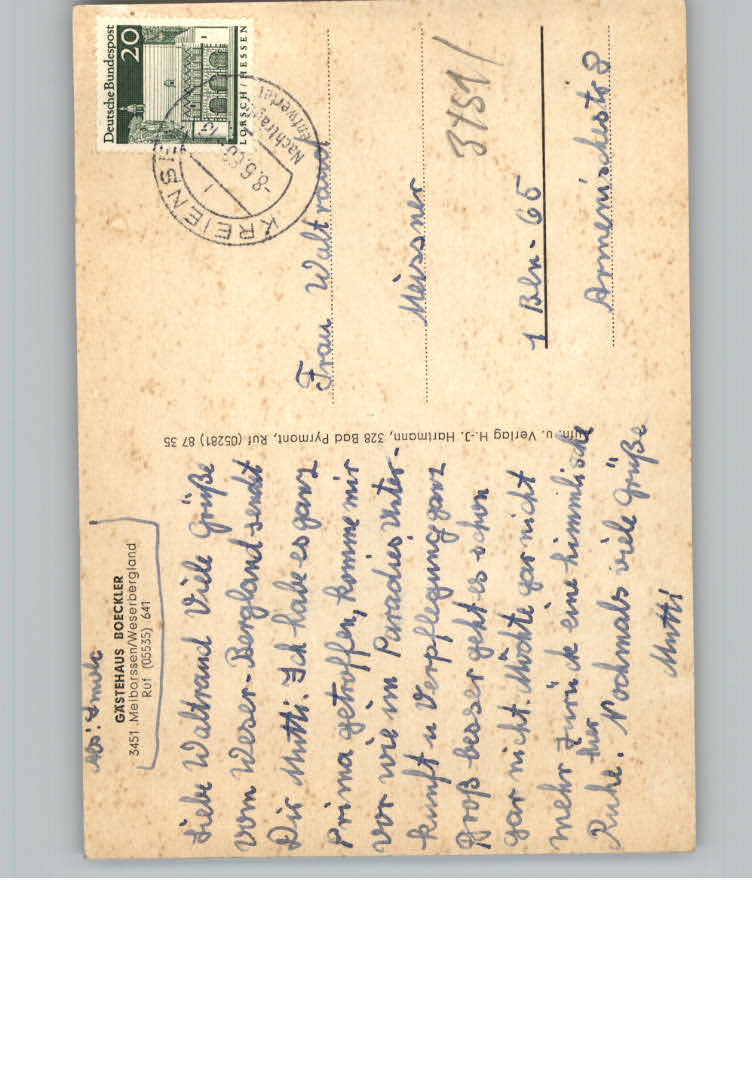 Abs:
GÄSTEHAUS BOECKLER
3451 Meiborssen/Weserbergland
Ruf (05535) 641
Liebe Waltraud Viele Grüße
vom Weser-Bergland sendet
Dir Mutti. Ich habe es ganz
prima getroffen, komme mir
vor wie im Paradies, Unter-
kunft u Verpflegung ganz
groß besser geht es schon
gar nicht. Möchte gar nicht
mehr zurück eine himmlische
Ruhe hier. Nochmals viele Grüße
Mutti
u. Verlag H.-J. Hartmann, 328 Bad Pyrmont, Ruf (05281) 87 35
Deutsche Bundespost
20
LORSCH/HESSEN
Nachträglich
entwertet
-8.6.
KREIENS
Frau Waltraud
Meissner
3451/
1 Bln-65
Armenischestr 8